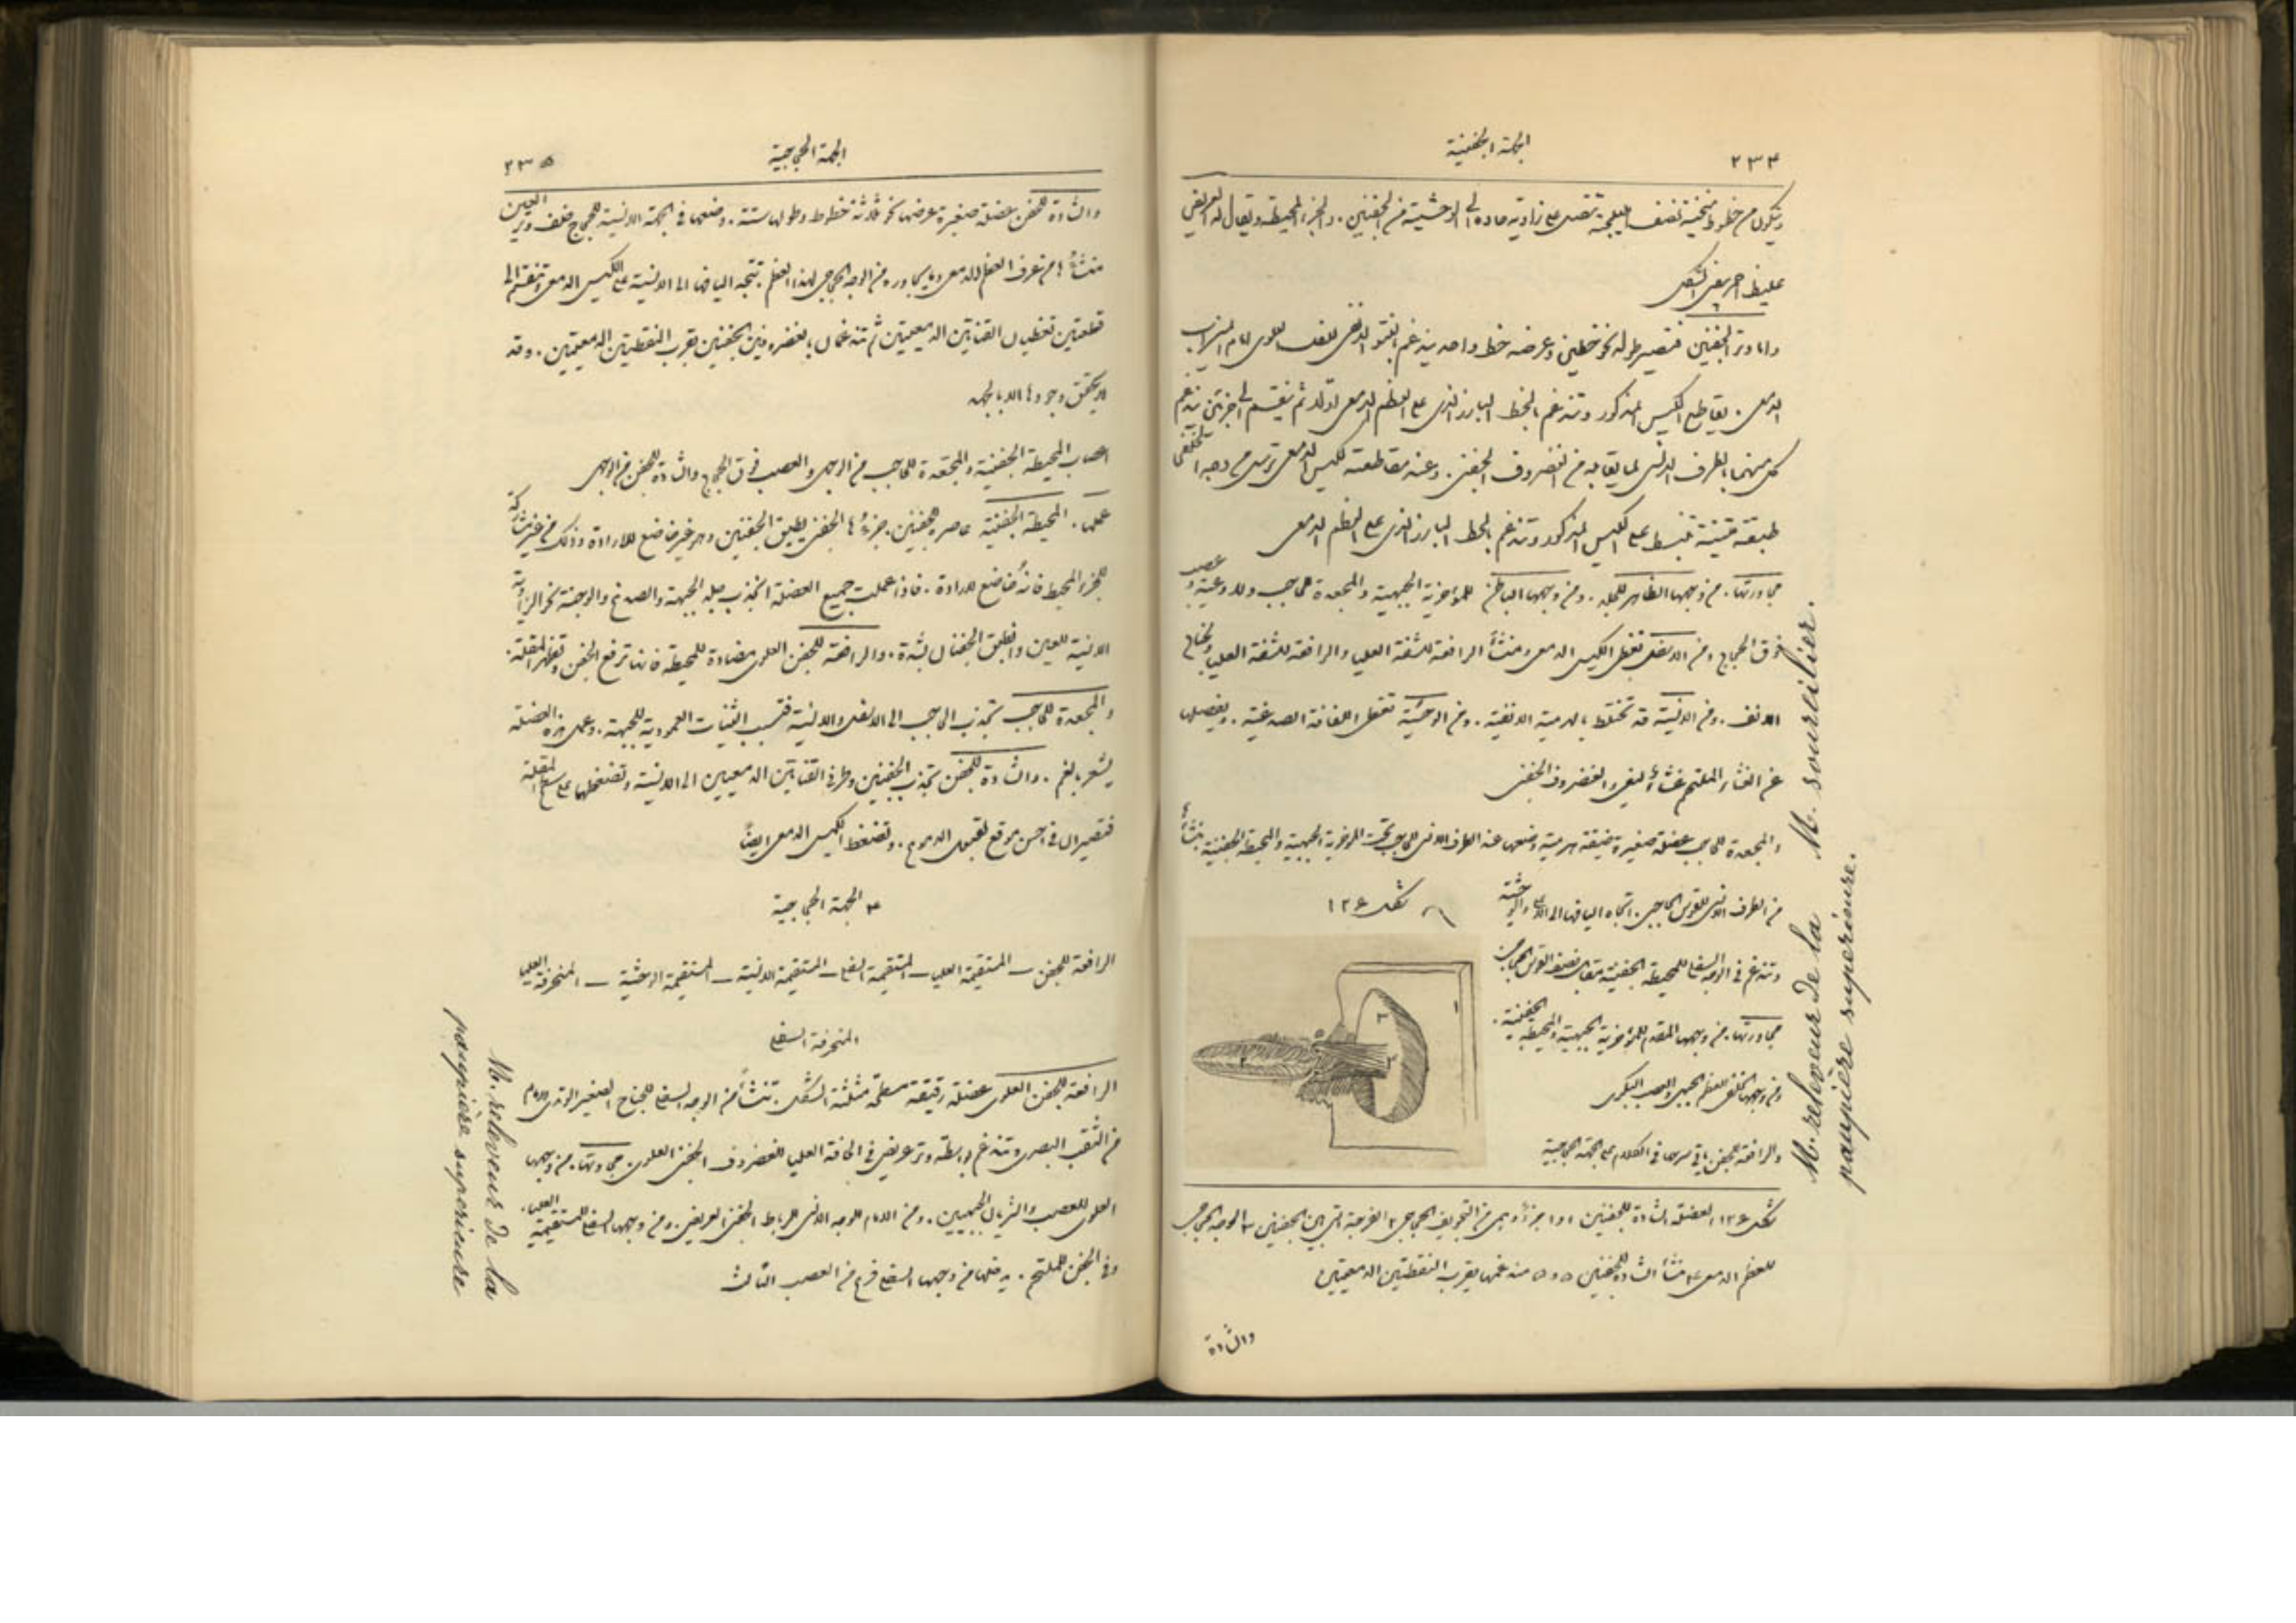 ٢٣٤
الجهة الجفنية
ويتكون من خطوط منحنية نصف اهليلجية تتصل على زاوية حادة في الوحشية من الجفنين . والجزء المحيط ويقال له العريض
غليظ احمر بيضي الشكل
واما وتر الجفنين فقصير طوله نحو خطين وعرضه خط واحد يندغم بالنتو الانفي للفك العلوي امام الميزاب
الدمعي . يقاطع الكيس المذكور وتندغم بالخط البارز الذي على العظم الدمعي اولا ثم ينقسم الى جزئين يندغم
كل منهما بالطرف الانسي لما يقابله من الغضروف الجفني . وعند مقاطعته للكيس الدمعي ترسل من وجهه الخلفي
طبقة متينة تنبسط على الكيس المذكور وتندغم بالخط البارز الذي على العظم الدمعي
مجاورتها . من وجهها الظاهر للجلد . ومن وجهها الباطن للمؤخرية الجبهية والمجعدة للحاجب وللاوعية وعصب
فوق الحجاج ومن الاسفل تغطي الكيس الدمعي ومنشأ الرافعة للشفة العليا والرافعة للشفة العليا ولجناح
الانف . ومن الانسية قد تختلط بالهرمية الانفية . ومن الوحشية تغطي اللفافة الصدغية . ويفصلها
عن الغشاء الملتحم غشاء ليفي والغضروف الجفني
والمجعدة للحاجب عضلة صغيرة ضيقة هرمية وضعها عند الطرف الانسي للحاجب تحت المؤخرية الجبهية والمحيطة الجفنية . تنشأ
من الطرف الانسي للقوس الحاجبي . اتجاه اليافها الى الاعلى والوحشية
وتندغم في الوجه السفلي للمحيطة الجفنية مقابل نصف القوس الحجاجي
مجاورتها . من وجهها المقدم للمؤخرية الجبهية والمحيطة الجفنية .
ومن وجهها الخلفي للعظم الجبهي والعصب البكري
والرافعة للجفن ياتي شرحها في الكلام على الجهة الحجاجية
شكل ١٢٤
شكل ١٢٤ العضلة الشادة للجفنين ١ و١ جزء وحشي من التجويف الحجاجي ٢ الفرجة التي بين الجفنين ٣ الوجه الحجاجي
للعظم الدمعي ٤ منشأ الشادة للجفنين ٥ و٥ مندغمها بقرب النقطتين الدمعيتين
والشادة
M. sourcilier.
M. releveur de la
paupière supérieure.
الجهة الحجاجية
٢٣٥
والشادة للجفن عضلة صغيرة عرضها نحو ثلاثة خطوط وطولها ستة . وضعها في الجهة الانسية للحجاج خلف وتر العين
منشأها من عرف العظم الدمعي وما يجاوره من الوجه الحجاجي لهذا العظم . تتجه اليافها الى الانسية على الكيس الدمعي وتنقسم الى
قطعتين تغطيان القناتين الدمعيتين ثم تندغمان بالغضروفين الجفنيين بقرب النقطتين الدمعيتين . وقد
لا يتحقق وجودها الا بالجهد
اعصاب المحيطة الجفنية والمجعدة للحاجب من الوجهي والعصب فوق الحجاج والشادة للجفن من الوجهي
عملها . المحيطة الجفنية عاصرة للجفنين . جزءها الجفني يطبق الجفنين وهو غير خاضع للارادة وذلك من غير مشاركة
للجزء المحيط فانه خاضع للارادة . فاذا عملت جميع العضلة انجذب جلد الجبهة والصدغ والوجنة نحو الزاوية
الانسية للعين وانطبق الجفنان بشدة . والرافعة للجفن العلوي مضادة للمحيطة فانها ترفع الجفن وتظهر المقلة .
والمجعدة للحاجب تجذب الحاجب الى الاسفل والانسية فتسبب الثنيات العمودية للجبهة . وعمل هذه العضلة
يشعر بالغم . والشادة للجفن تجذب الجفنين وطرفي القناتين الدمعيين الى الانسية وتضغطها على سطح المقلة
فتصيران في احسن موقع لقبول الدموع . وتضغط الكيس الدمعي ايضا
٣ الجهة الحجاجية
الرافعة للجفن — المستقيمة العليا — المستقيمة السفلى — المستقيمة الانسية — المستقيمة الوحشية — المنحرفة العليا
المنحرفة السفلى
الرافعة للجفن العلوي عضلة رقيقة مسطحة مثلثة الشكل . تنشأ من الوجه السفلي للجناح الصغير الوتدي امام
من الثقب البصري وتندغم بواسطة وتر عريض في الحافة العليا للغضروف الجفني العلوي . مجاورتها . من وجهها
العلوي للعصب والشريان الجبهيين . ومن الامام للوجه الانسي للرباط الجفني العريض . ومن وجهها السفلي للمستقيمة العليا .
وفي الجفن للملتحم . يدخلها من وجهها السفلي فرع من العصب الثالث
M. releveur de la
paupière supérieure